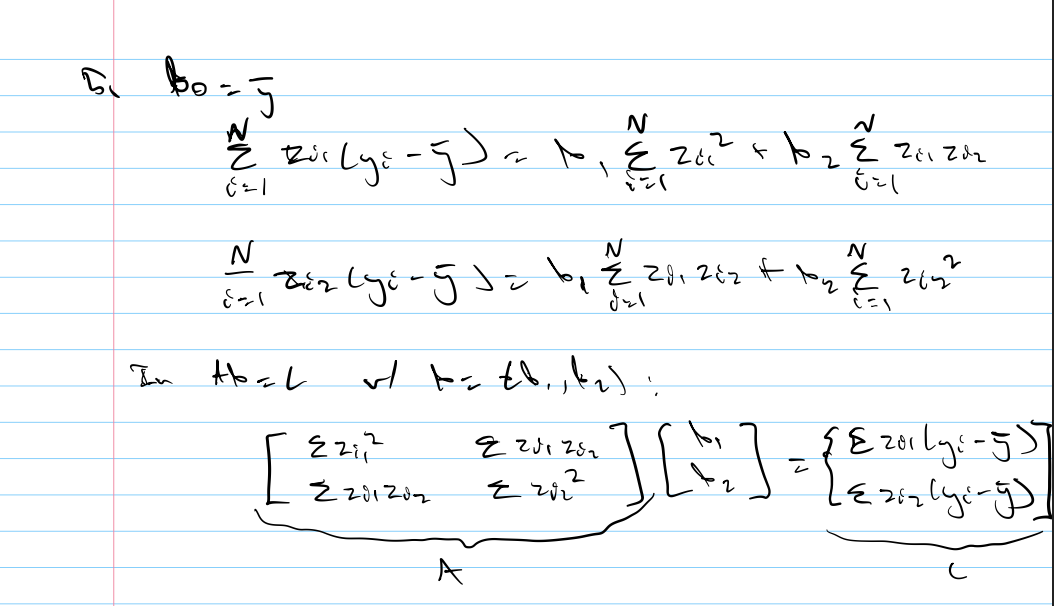 5. b₀ = ȳ
∑_{i=1}^{N} z_{i1}(y_i - ȳ) = b₁ ∑_{i=1}^{N} z_{i1}² + b₂ ∑_{i=1}^{N} z_{i1} z_{i2}
∑_{i=1}^{N} z_{i2}(y_i - ȳ) = b₁ ∑_{i=1}^{N} z_{i1} z_{i2} + b₂ ∑_{i=1}^{N} z_{i2}²
In Ab = C w/ b = (b₁, b₂):
[ ∑z_{i1}² ∑z_{i1}z_{i2} ] [ b₁ ] = [ ∑z_{i1}(y_i - ȳ) ]
[ ∑z_{i1}z_{i2} ∑z_{i2}² ] [ b₂ ] [ ∑z_{i2}(y_i - ȳ) ]
A C